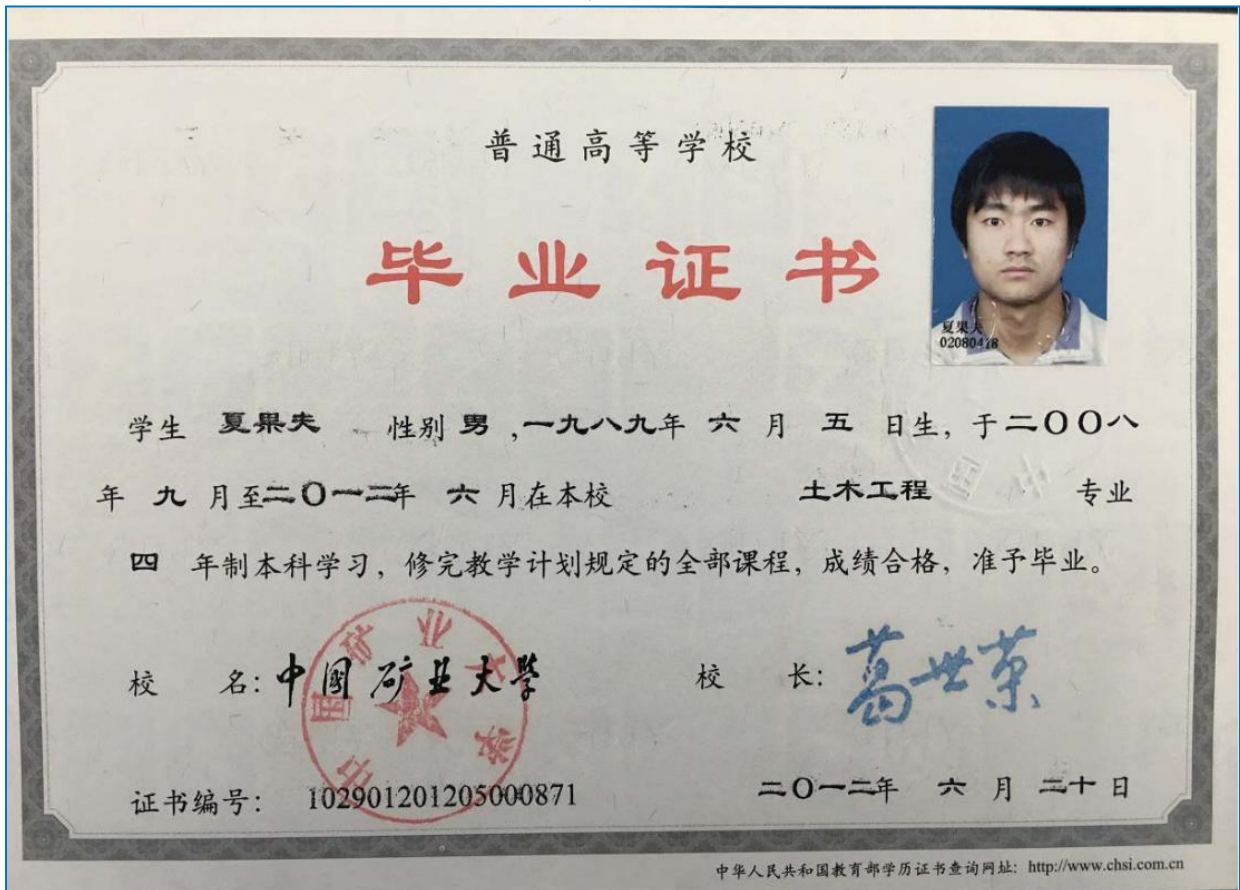 普通高等学校
毕业证书
夏果夫
02080418
学生 夏果夫 性别 男 ,一九八九年 六 月 五 日生, 于二〇〇八
年 九 月至二〇一二年 六 月在本校 土木工程 专业
四 年制本科学习, 修完教学计划规定的全部课程, 成绩合格, 准予毕业。
校 名: 中国矿业大学 校 长: 葛世荣
中国矿业大学
证书编号: 102901201205000871 二〇一二年 六 月 二十 日
中华人民共和国教育部学历证书查询网址: http://www.chsi.com.cn